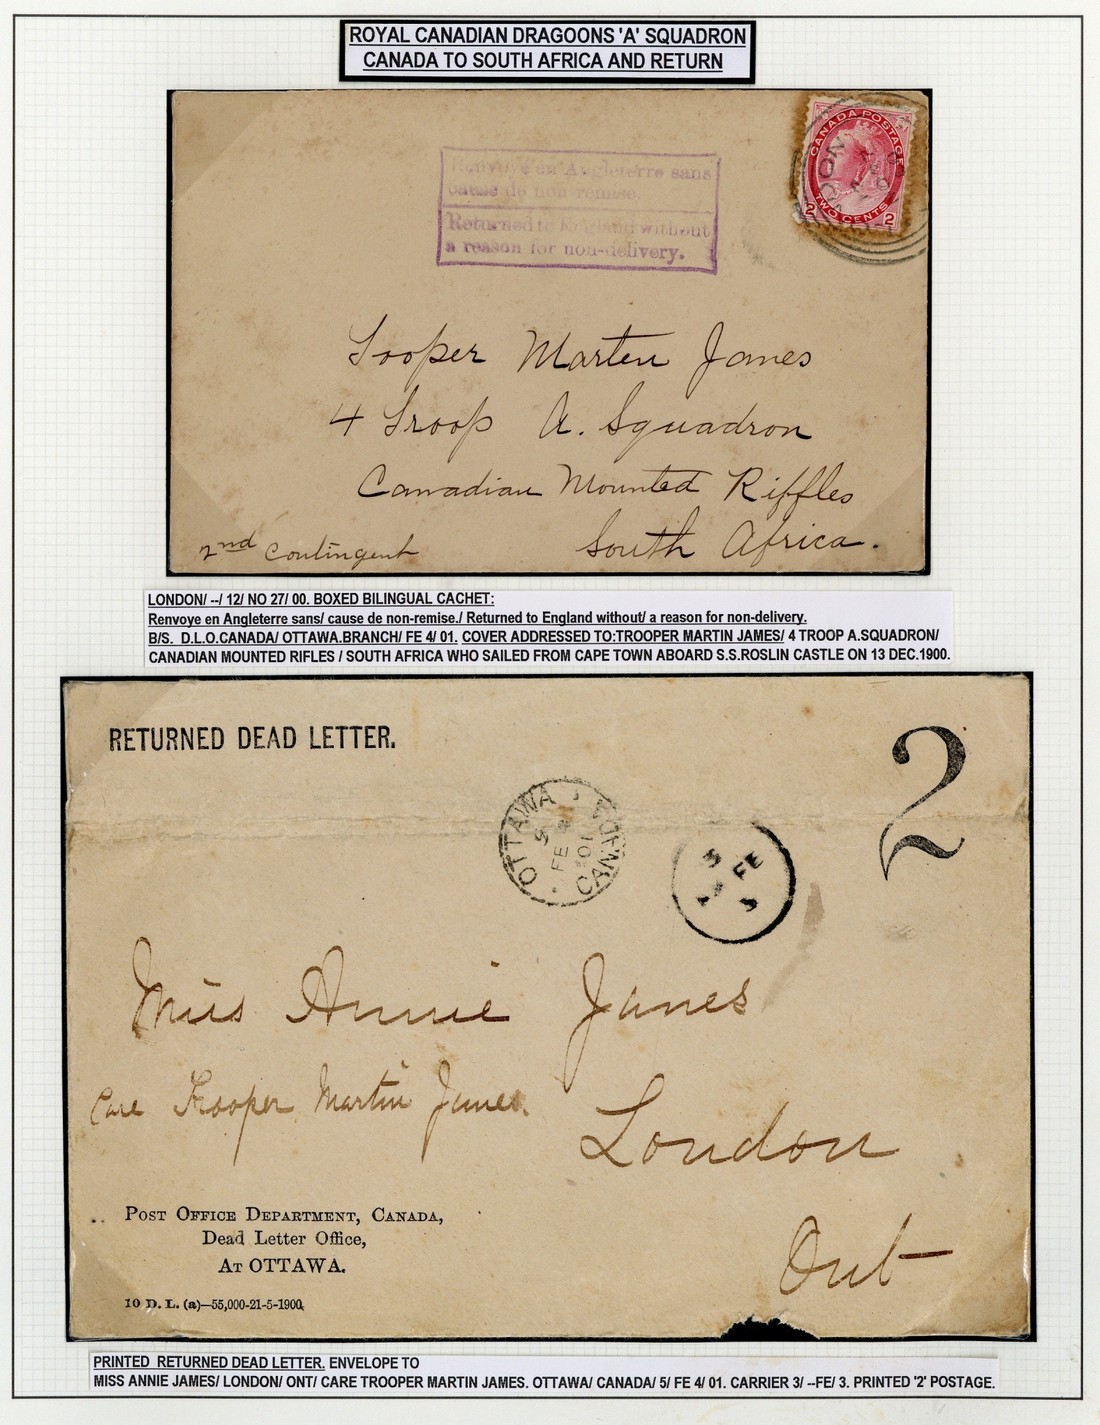 ROYAL CANADIAN DRAGOONS 'A' SQUADRON
CANADA TO SOUTH AFRICA AND RETURN
CANADA POSTAGE
2 TWO CENTS 2
Renvoye en Angleterre sans
cause de non-remise.
Returned to England without
a reason for non-delivery.
Tooper Marten James
4 Troop A. Squadron
Canadian Mounted Riffles
South Africa.
2nd Contingent
LONDON/ --/ 12/ NO 27/ 00. BOXED BILINGUAL CACHET:
Renvoye en Angleterre sans/ cause de non-remise./ Returned to England without/ a reason for non-delivery.
B/S. D.L.O.CANADA/ OTTAWA.BRANCH/ FE 4/ 01. COVER ADDRESSED TO:TROOPER MARTIN JAMES/ 4 TROOP A.SQUADRON/
CANADIAN MOUNTED RIFLES / SOUTH AFRICA WHO SAILED FROM CAPE TOWN ABOARD S.S.ROSLIN CASTLE ON 13 DEC.1900.
RETURNED DEAD LETTER.
2
OTTAWA
5
FE 4
01
CANADA
3
FE
3
Miss Annie James
Care Trooper Martin James.
London
Ont
POST OFFICE DEPARTMENT, CANADA,
Dead Letter Office,
AT OTTAWA.
10 D. L. (a)—55,000-21-5-1900.
PRINTED RETURNED DEAD LETTER. ENVELOPE TO
MISS ANNIE JAMES/ LONDON/ ONT/ CARE TROOPER MARTIN JAMES. OTTAWA/ CANADA/ 5/ FE 4/ 01. CARRIER 3/ --FE/ 3. PRINTED '2' POSTAGE.